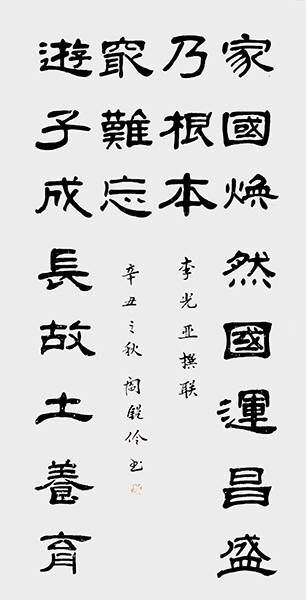 家國煥然國運昌盛
乃根本
李光亚撰联
遊子成長故土養育
冣難忘
辛丑之秋 阎伶书